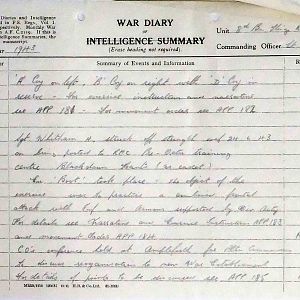 WAR DIARY
or
INTELLIGENCE SUMMARY
(Erase heading not required).
Diaries and Intelligence
in F.S. Regs., Vol. I.
respectively. Monthly War
in A.F. C2119. If this is
telligence Summaries, the
manuscript.
Unit 8th Bn
Commanding Officer Lt.
1943
Summary of Events and Information
'A' Coy on left, 'B' Coy on right with 'D' Coy in
reserve - For exercise instruction and narrative
see APP 181 - For movement order see APP 182
Sgt Whitham A. struck off strength wef 24 4 43
on being posted to RAC Pre Data Training
Centre Blackdown Hants (as cadet)
Ex 'Root' took place - the object of the
exercise was to practice a
attack with Inf and Armour supported by Div Arty
For details see Narrative and Exercise Instruction APP 183
and movement Order APP 184
C.O's conference held at Ampleforth for
to discuss reorganisation to new War Establishment
For details of points to be discussed see APP 185